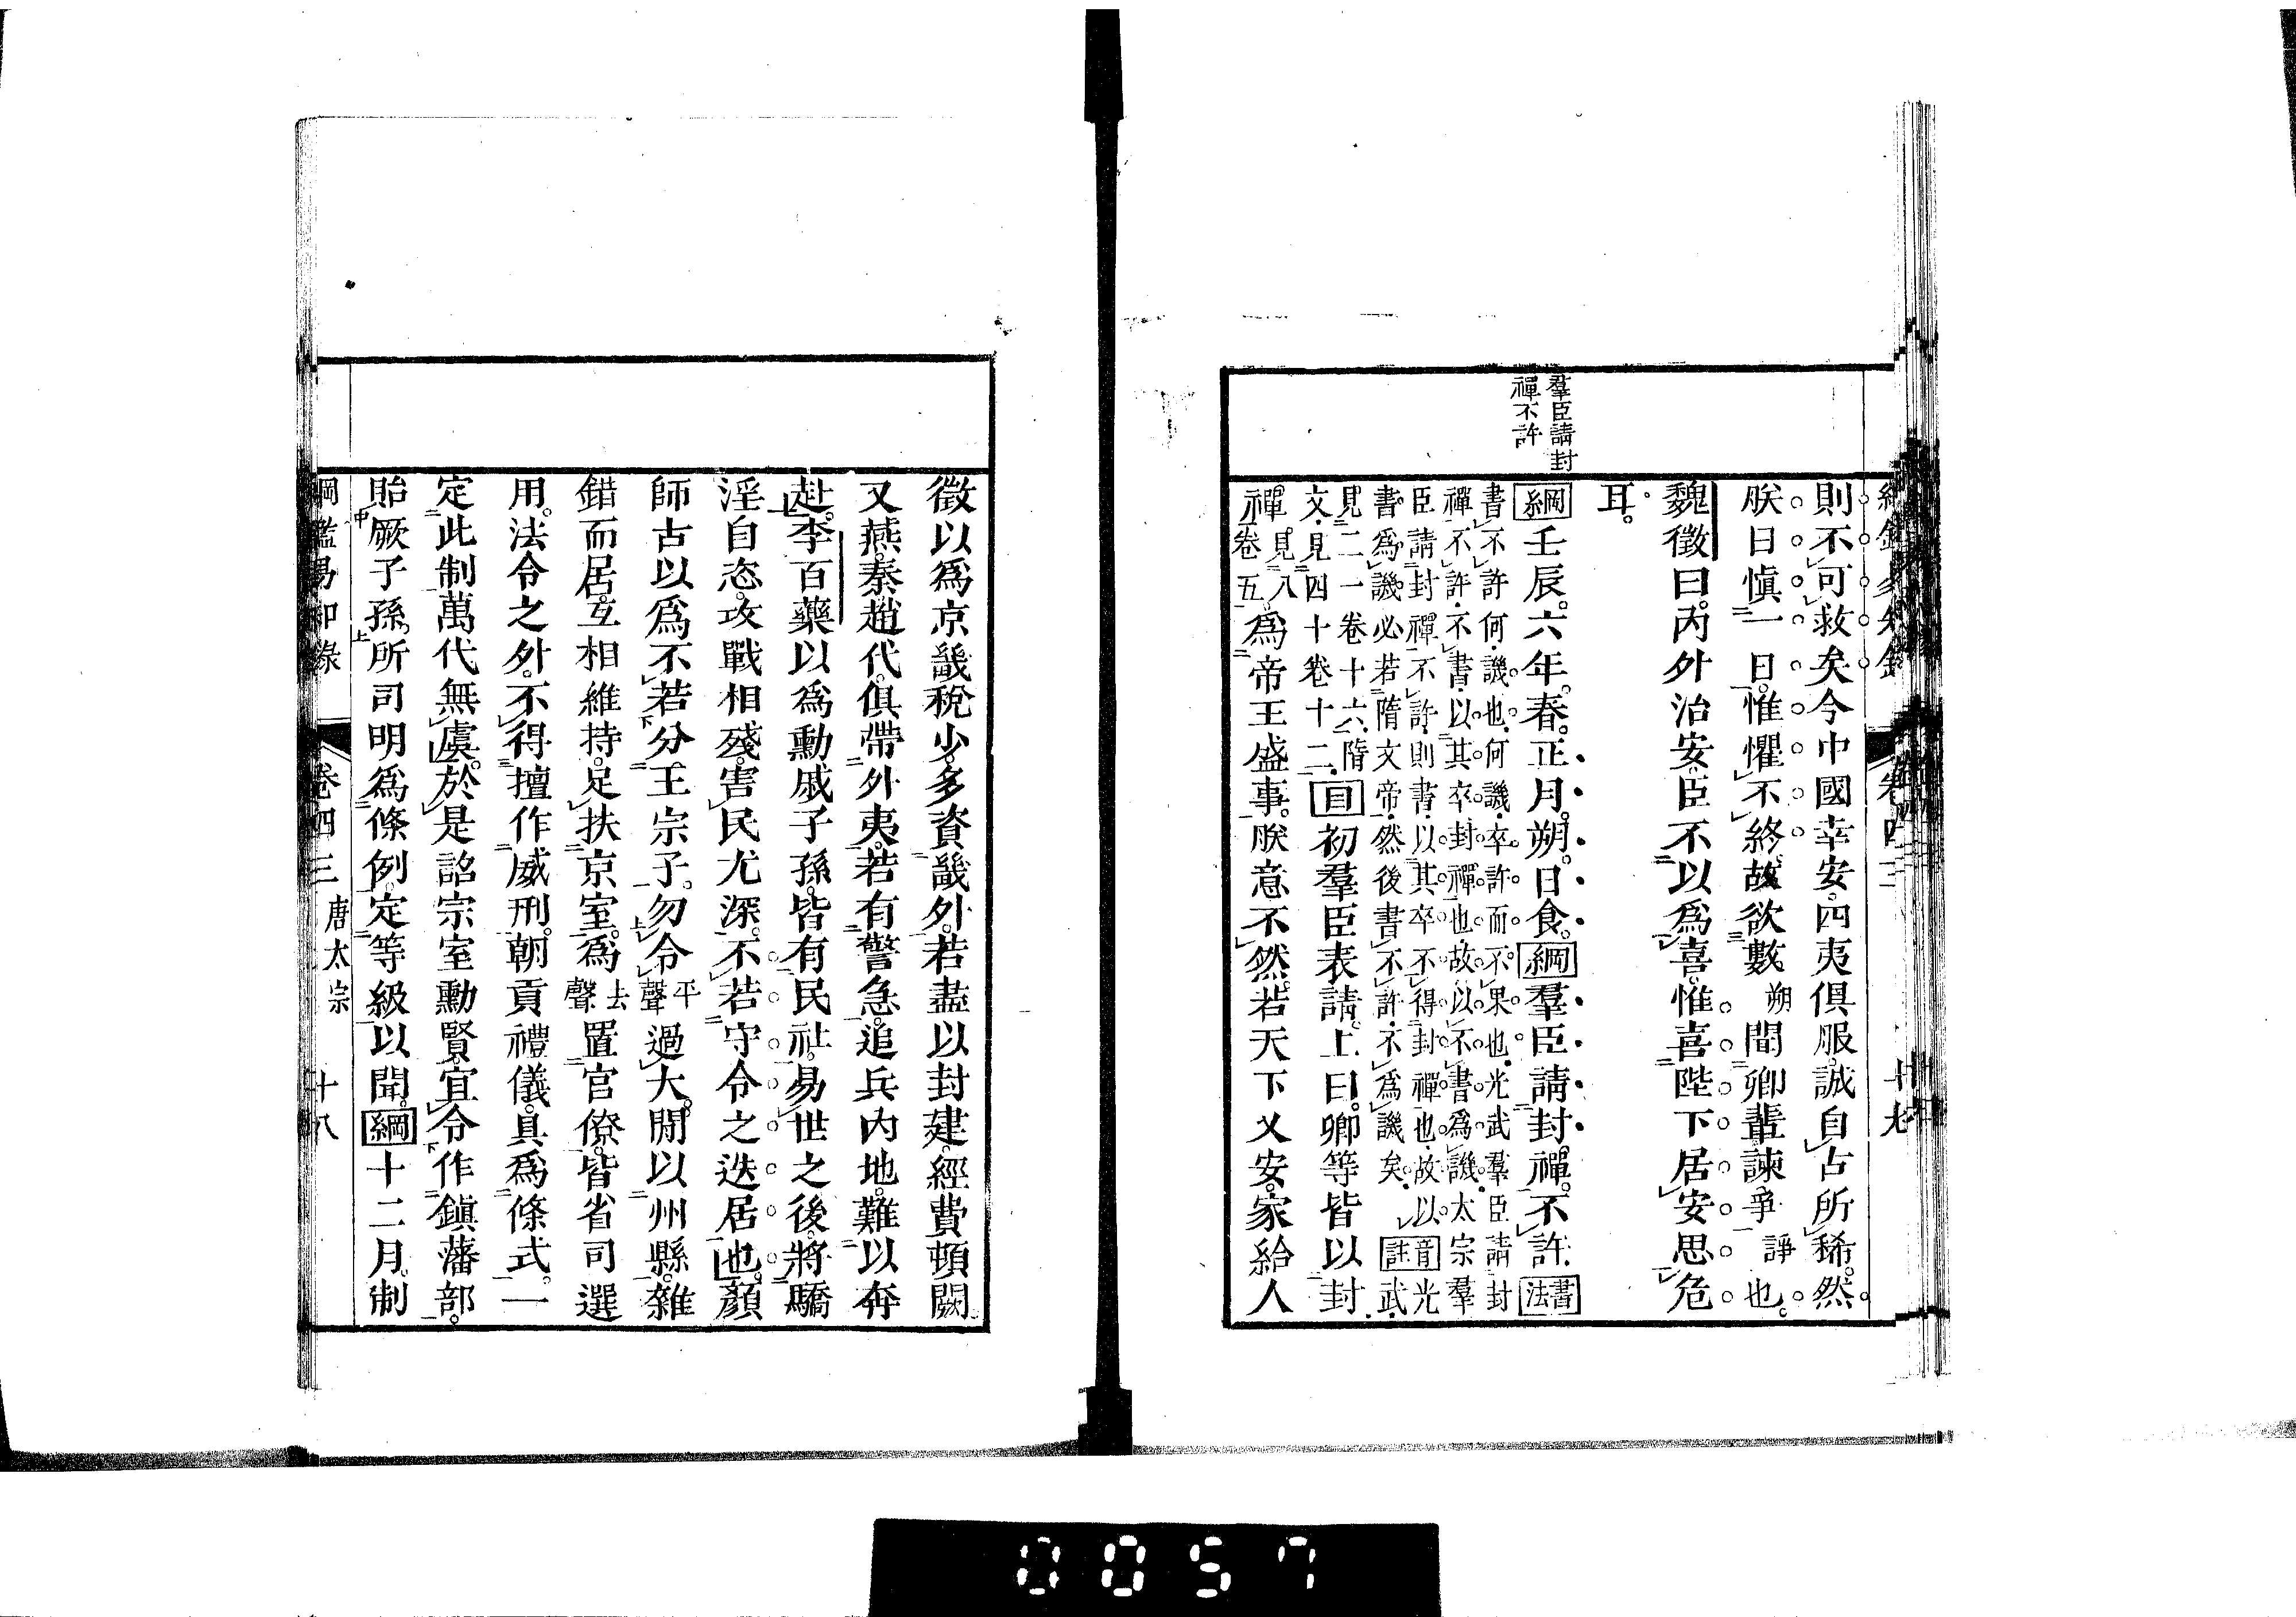 羣臣請封
禪不許
則不可救矣今中國幸安四夷俱服誠自古所稀然
朕日慎一日惟懼不終故欲數朔聞卿輩諫爭諍也
魏徵曰內外治安臣不以爲喜惟喜陛下居安思危
耳
綱壬辰六年春正月朔日食綱羣臣請封禪不許書法
書不許何譏也何譏卒許而不果也光武羣臣請封
禪不許不書以其卒封禪也故以不書爲譏太宗羣
臣請封禪不許則書以其卒不得封禪也故以
書爲譏必若隋文帝然後書不許不爲譏矣音註光武
見二一卷十六隋
文見四十卷十二目初羣臣表請上曰卿等皆以封
禪見八卷五爲帝王盛事朕意不然若天下乂安家給人
徵以爲京畿稅少多資畿外若盡以封建經費頓闕
又燕秦趙代俱帶外夷若有警急追兵內地難以奔
赴李百藥以爲勳戚子孫皆有民社易世之後將驕
淫自恣攻戰相殘害民尤深不若守令之迭居也顏
師古以爲不若分王宗子勿令平聲過大閒以州縣雜
錯而居互相維持足扶京室爲去聲置官僚皆省司選
用法令之外不得擅作威刑朝貢禮儀具爲條式一
定此制萬代無虞於是詔宗室勳賢宜令作鎭藩部
貽厥子孫所司明爲條例定等級以聞綱十二月制
綱鑑易知錄 卷四三 唐太宗 十八